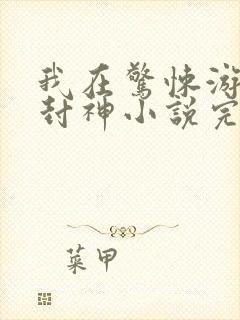 我在驚悚游
封神小說完
菜甲